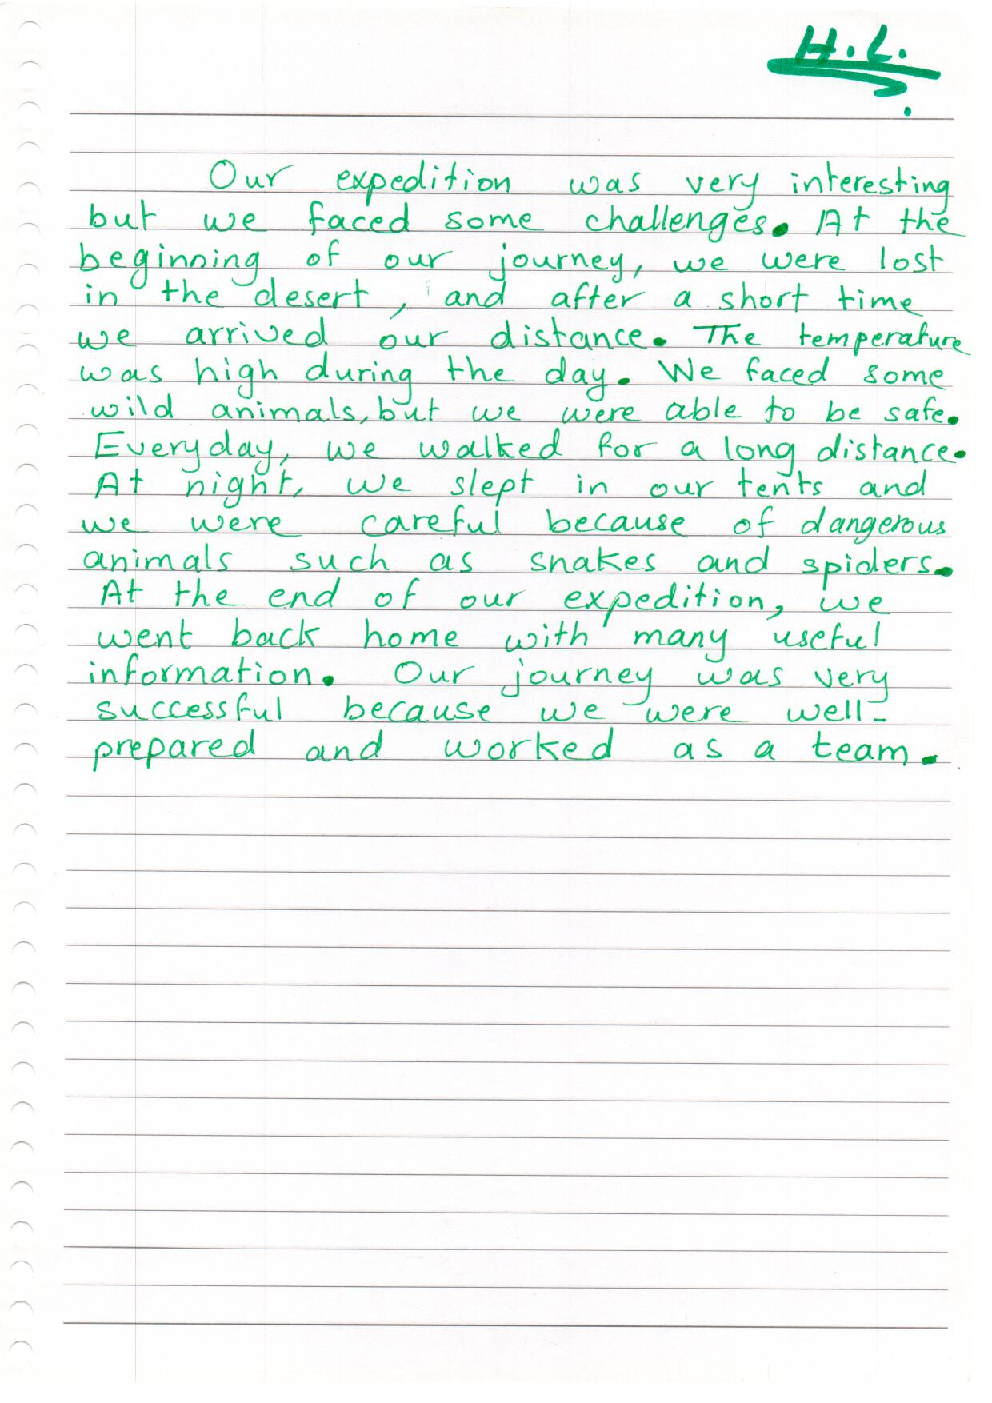 H.L.
Our expedition was very interesting
but we faced some challenges. At the
beginning of our journey, we were lost
in the desert, and after a short time
we arrived our distance. The temperature
was high during the day. We faced some
wild animals, but we were able to be safe.
Everyday, we walked for a long distance.
At night, we slept in our tents and
we were careful because of dangerous
animals such as snakes and spiders.
At the end of our expedition, we
went back home with many useful
information. Our journey was very
successful because we were well-
prepared and worked as a team.